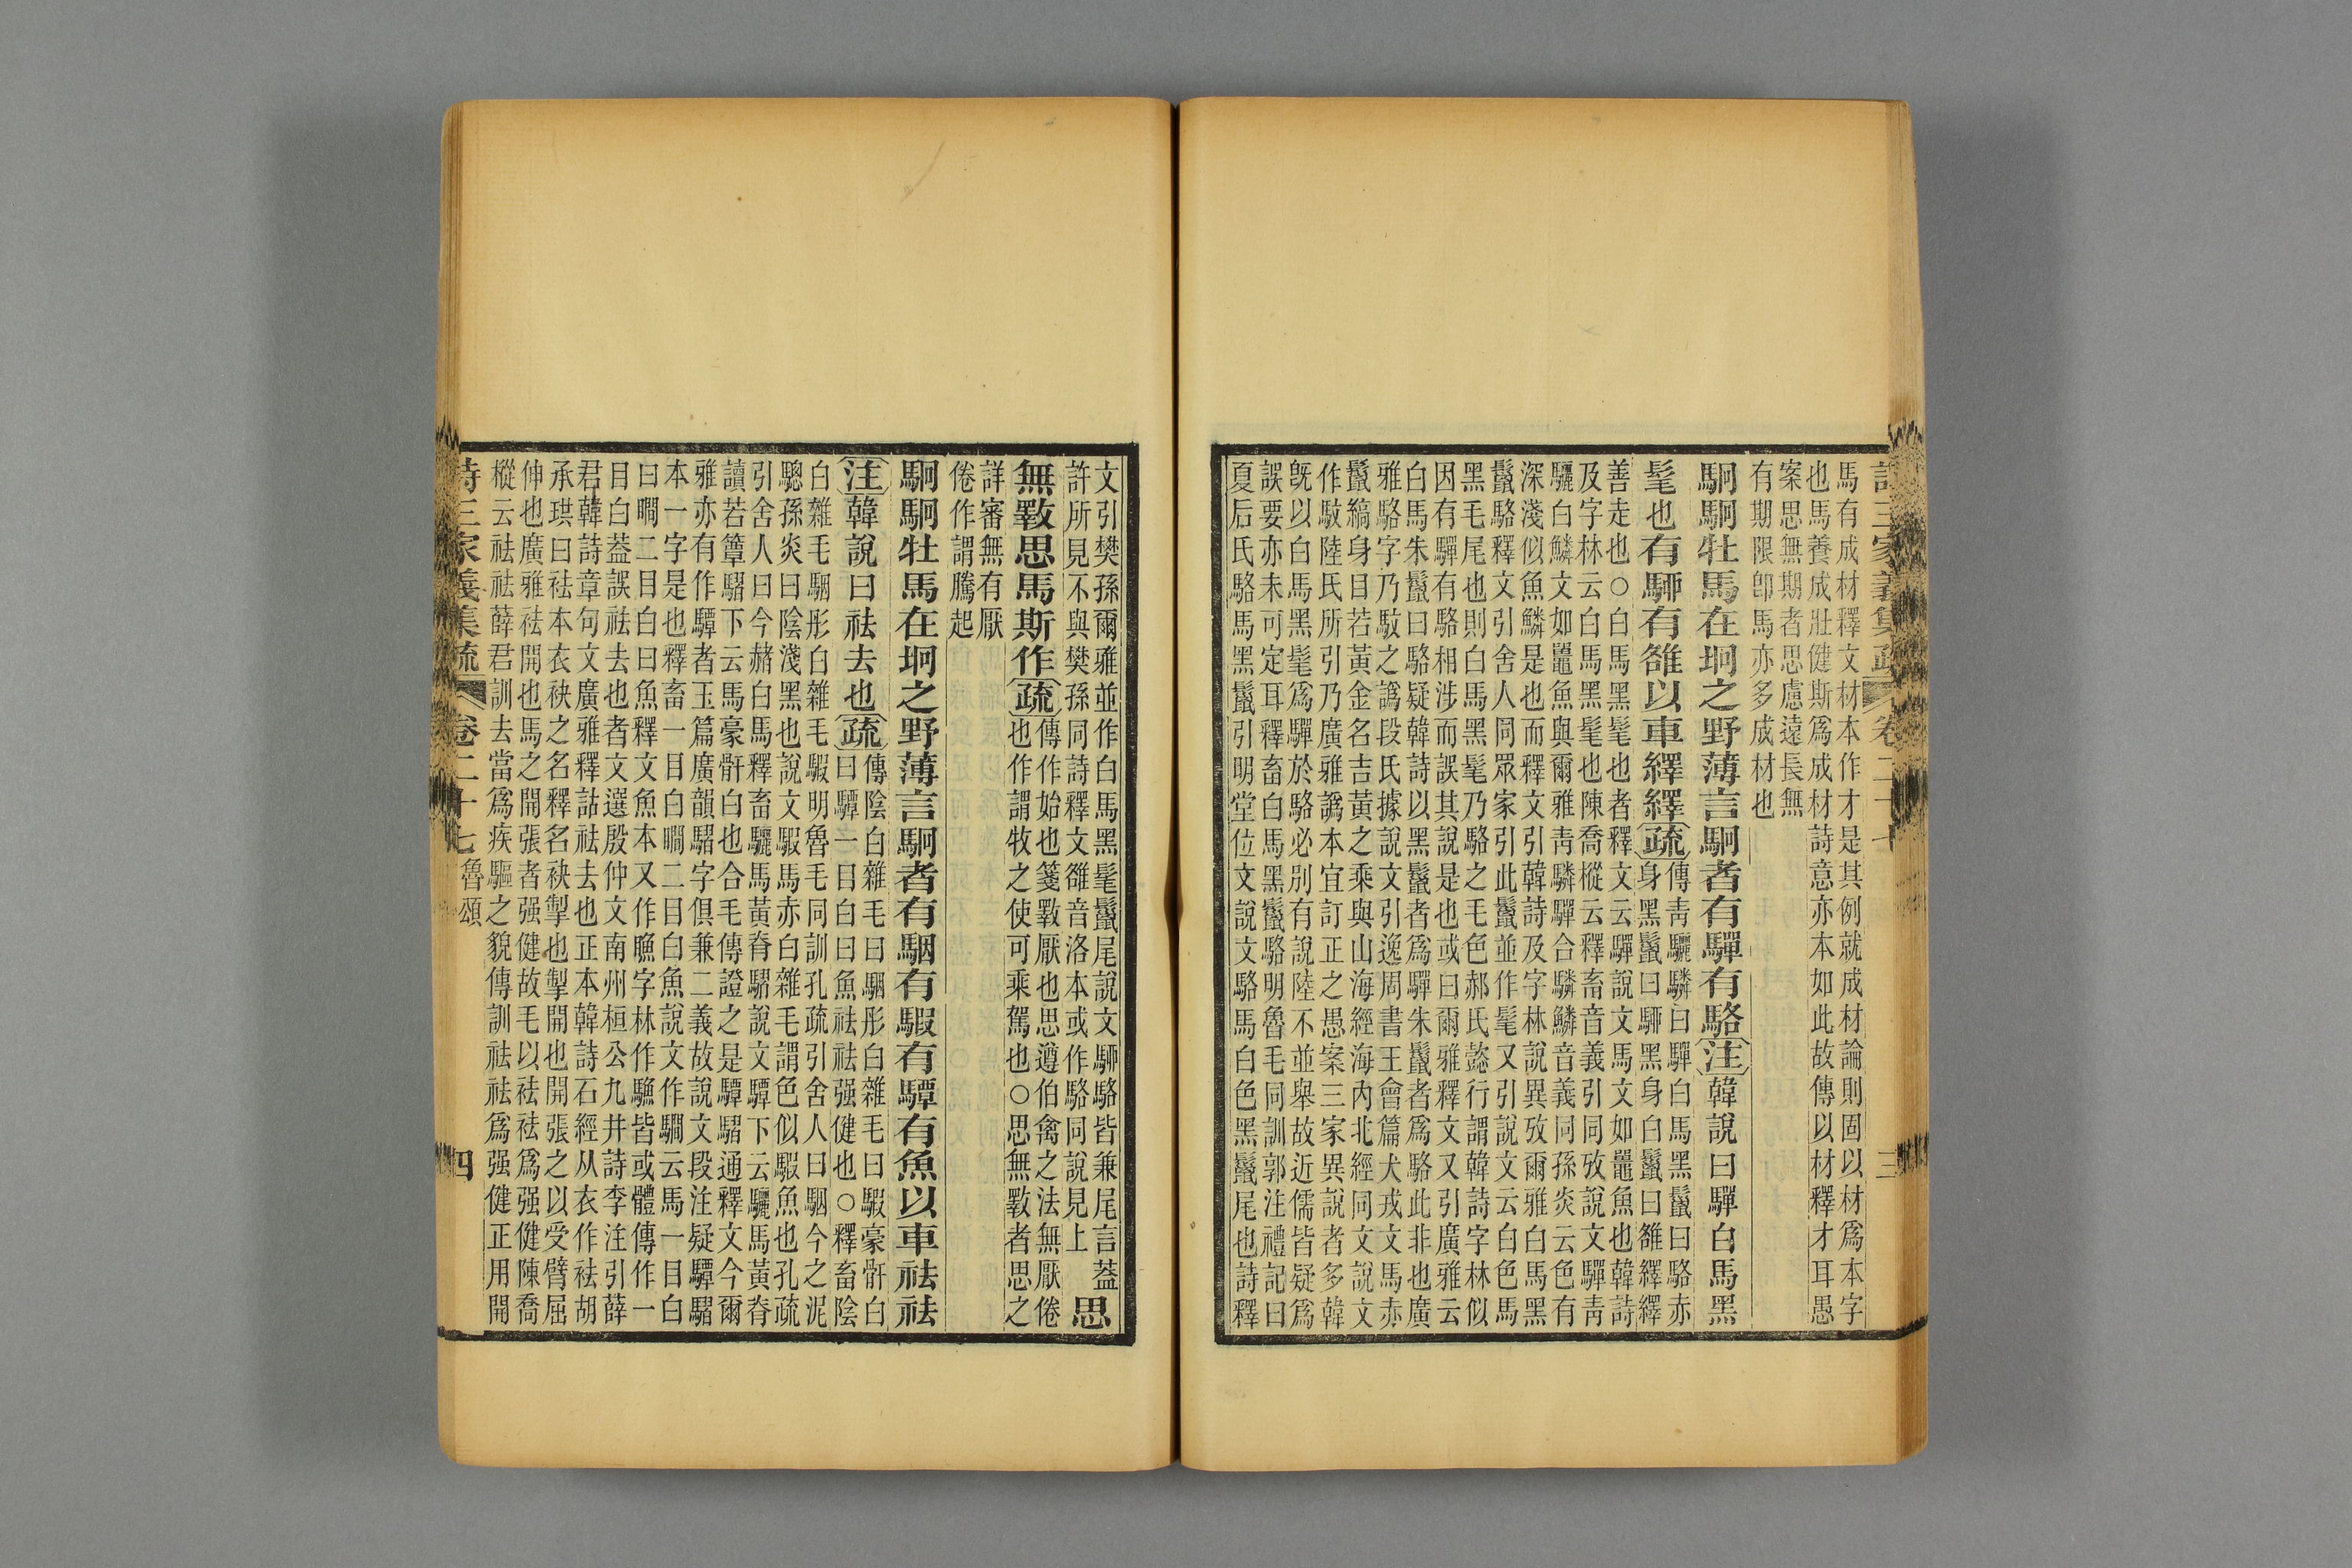 詩三家義集疏 卷二十七 三
馬有成材釋文材本作才是其例就成材論則固以材爲本字
也馬養成壯健斯爲成材詩意亦本如此故傳以材釋才耳愚
案思無期者思慮遠長無
有期限卽馬亦多成材也
駉駉牡馬在坰之野薄言駉者有驒有駱注韓說曰驒白馬黑
髦也有駵有雒以車繹繹疏傳靑驪驎曰驒白馬黑鬣曰駱赤
身黑鬣曰駵黑身白鬣曰雒繹繹
善走也○白馬黑髦也者釋文云驒說文馬文如鼉魚也韓詩
及字林云白馬黑髦也陳喬樅云釋畜音義引同攷說文驒靑
驪白鱗文如鼉魚與爾雅靑驎驒合驎鱗音義同孫炎云色有
深淺似魚鱗是也而釋文引韓詩及字林說異攷爾雅白馬黑
鬣駱釋文引舍人同眾家引此鬣並作髦又引說文云白色馬
黑毛尾也則白馬黑髦乃駱之毛色郝氏懿行謂韓詩字林似
因有驒有駱相涉而誤其說是也或曰爾雅釋文又引廣雅云
白馬朱鬣曰駱疑韓詩以黑鬣者爲驒朱鬣者爲駱此非也廣
雅駱字乃駁之譌段氏據說文引逸周書王會篇犬戎文馬赤
鬣縞身目若黃金名吉黃之乘與山海經海內北經同文說文
作駁陸氏所引乃廣雅譌本宜訂正之愚案三家異說者多韓
旣以白馬黑髦爲驒於駱必別有說陸不並舉故近儒皆疑爲
誤要亦未可定耳釋畜白馬黑鬣駱明魯毛同訓郭注禮記曰
夏后氏駱馬黑鬣引明堂位文說文駱馬白色黑鬣尾也詩釋
文引樊孫爾雅並作白馬黑髦鬣尾說文駵駱皆兼尾言葢
許所見不與樊孫同詩釋文雒音洛本或作駱同說見上 思
無斁思馬斯作疏傳作始也箋斁厭也思遵伯禽之法無厭倦
也作謂牧之使可乘駕也○思無斁者思之
詳審無有厭
倦作謂騰起
駉駉牡馬在坰之野薄言駉者有駰有騢有驔有魚以車祛祛
注韓說曰祛去也疏傳陰白雜毛曰駰彤白雜毛曰騢豪骭白
曰驔二目白曰魚祛祛强健也○釋畜陰
白雜毛駰彤白雜毛騢明魯毛同訓孔疏引舍人曰駰今之泥
驄孫炎曰陰淺黑也說文騢馬赤白雜毛謂色似騢魚也孔疏
引舍人曰今赭白馬釋畜驪馬黃脊騽說文驔下云驪馬黃脊
讀若簟騽下云馬豪骭白也合毛傳證之是驔騽通釋文今爾
雅亦有作驔者玉篇廣韻騽字俱兼二義故說文段注疑驔騽
本一字是也釋畜一目白瞷二目白魚說文作瞯云馬一目白
曰瞯二目白曰魚釋文魚本又作䱷字林作䲣皆或體傳作一
目白葢誤祛去也者文選殷仲文南州桓公九井詩李注引薛
君韓詩章句文廣雅釋詁祛去也正本韓詩石經从衣作袪胡
承珙曰祛本衣袂之名釋名袂掣也掣開也開張之以受臂屈
伸也廣雅祛開也馬之開張者强健故毛以祛祛爲强健陳喬
樅云祛祛薛君訓去當爲疾驅之貌傳訓祛祛爲强健正用開
詩三家義集疏 卷二十七 魯頌 四